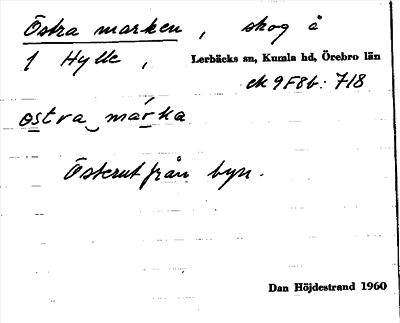 Östra marken, skog å
1 Hylle, Lerbäcks sn, Kumla hd, Örebro län
ek 9F8b: 718
ostra márka
Österut från byn.
Dan Höjdestrand 1960